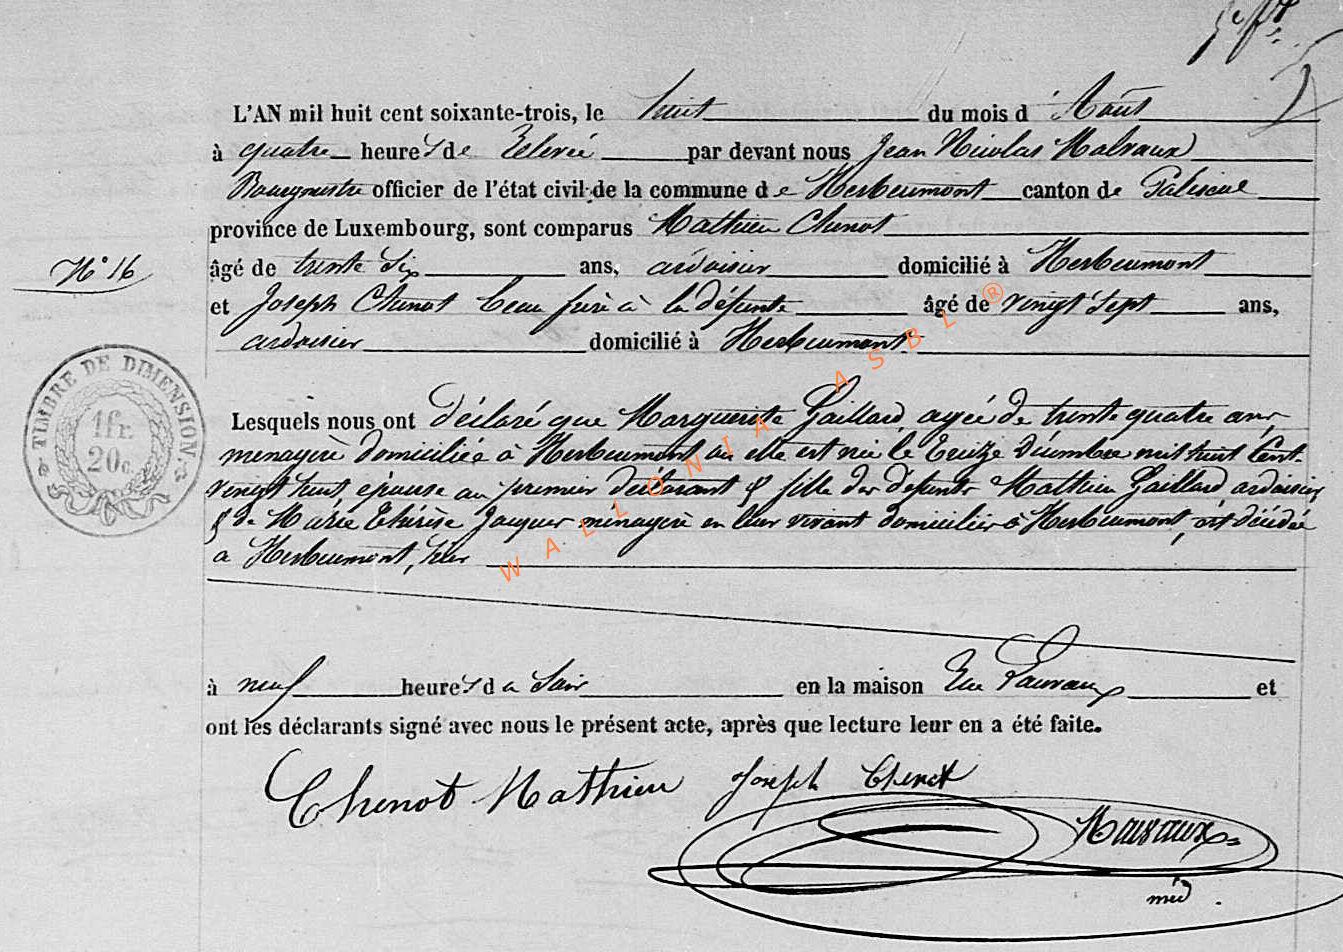 L'AN mil huit cent soixante-trois, le huit du mois d' Août
à quatre heures de Relevée par devant nous Jean Nicolas Malvaux
Bourgmestre officier de l'état civil de la commune de Herbeumont canton de Paliseul
province de Luxembourg, sont comparus Mathieu Chenot
N° 16
âgé de trente six ans, ardoisier domicilié à Herbeumont
et Joseph Chenot beau frère à la défunte âgé de vingt sept ans,
ardoisier domicilié à Herbeumont
TIMBRE DE DIMENSION
1 fr.
20 c.
Lesquels nous ont déclaré que Marguerite Gaillard, agée de trente quatre ans,
menagère domiciliée à Herbeumont ou elle est née le treize décembre mil huit cent
vingt huit, épouse au premier déclarant & fille des defunts Mathieu Gaillard ardoisier
& de Marie Thérèse Jacques ménagère en leur vivant domicilies à Herbeumont, est décédée
a Herbeumont, hier
WALLONIA ASBL ®
à neuf heures du Soir en la maison et
ont les déclarants signé avec nous le présent acte, après que lecture leur en a été faite.
Chenot Mathieu Joseph Chenot
Malvaux